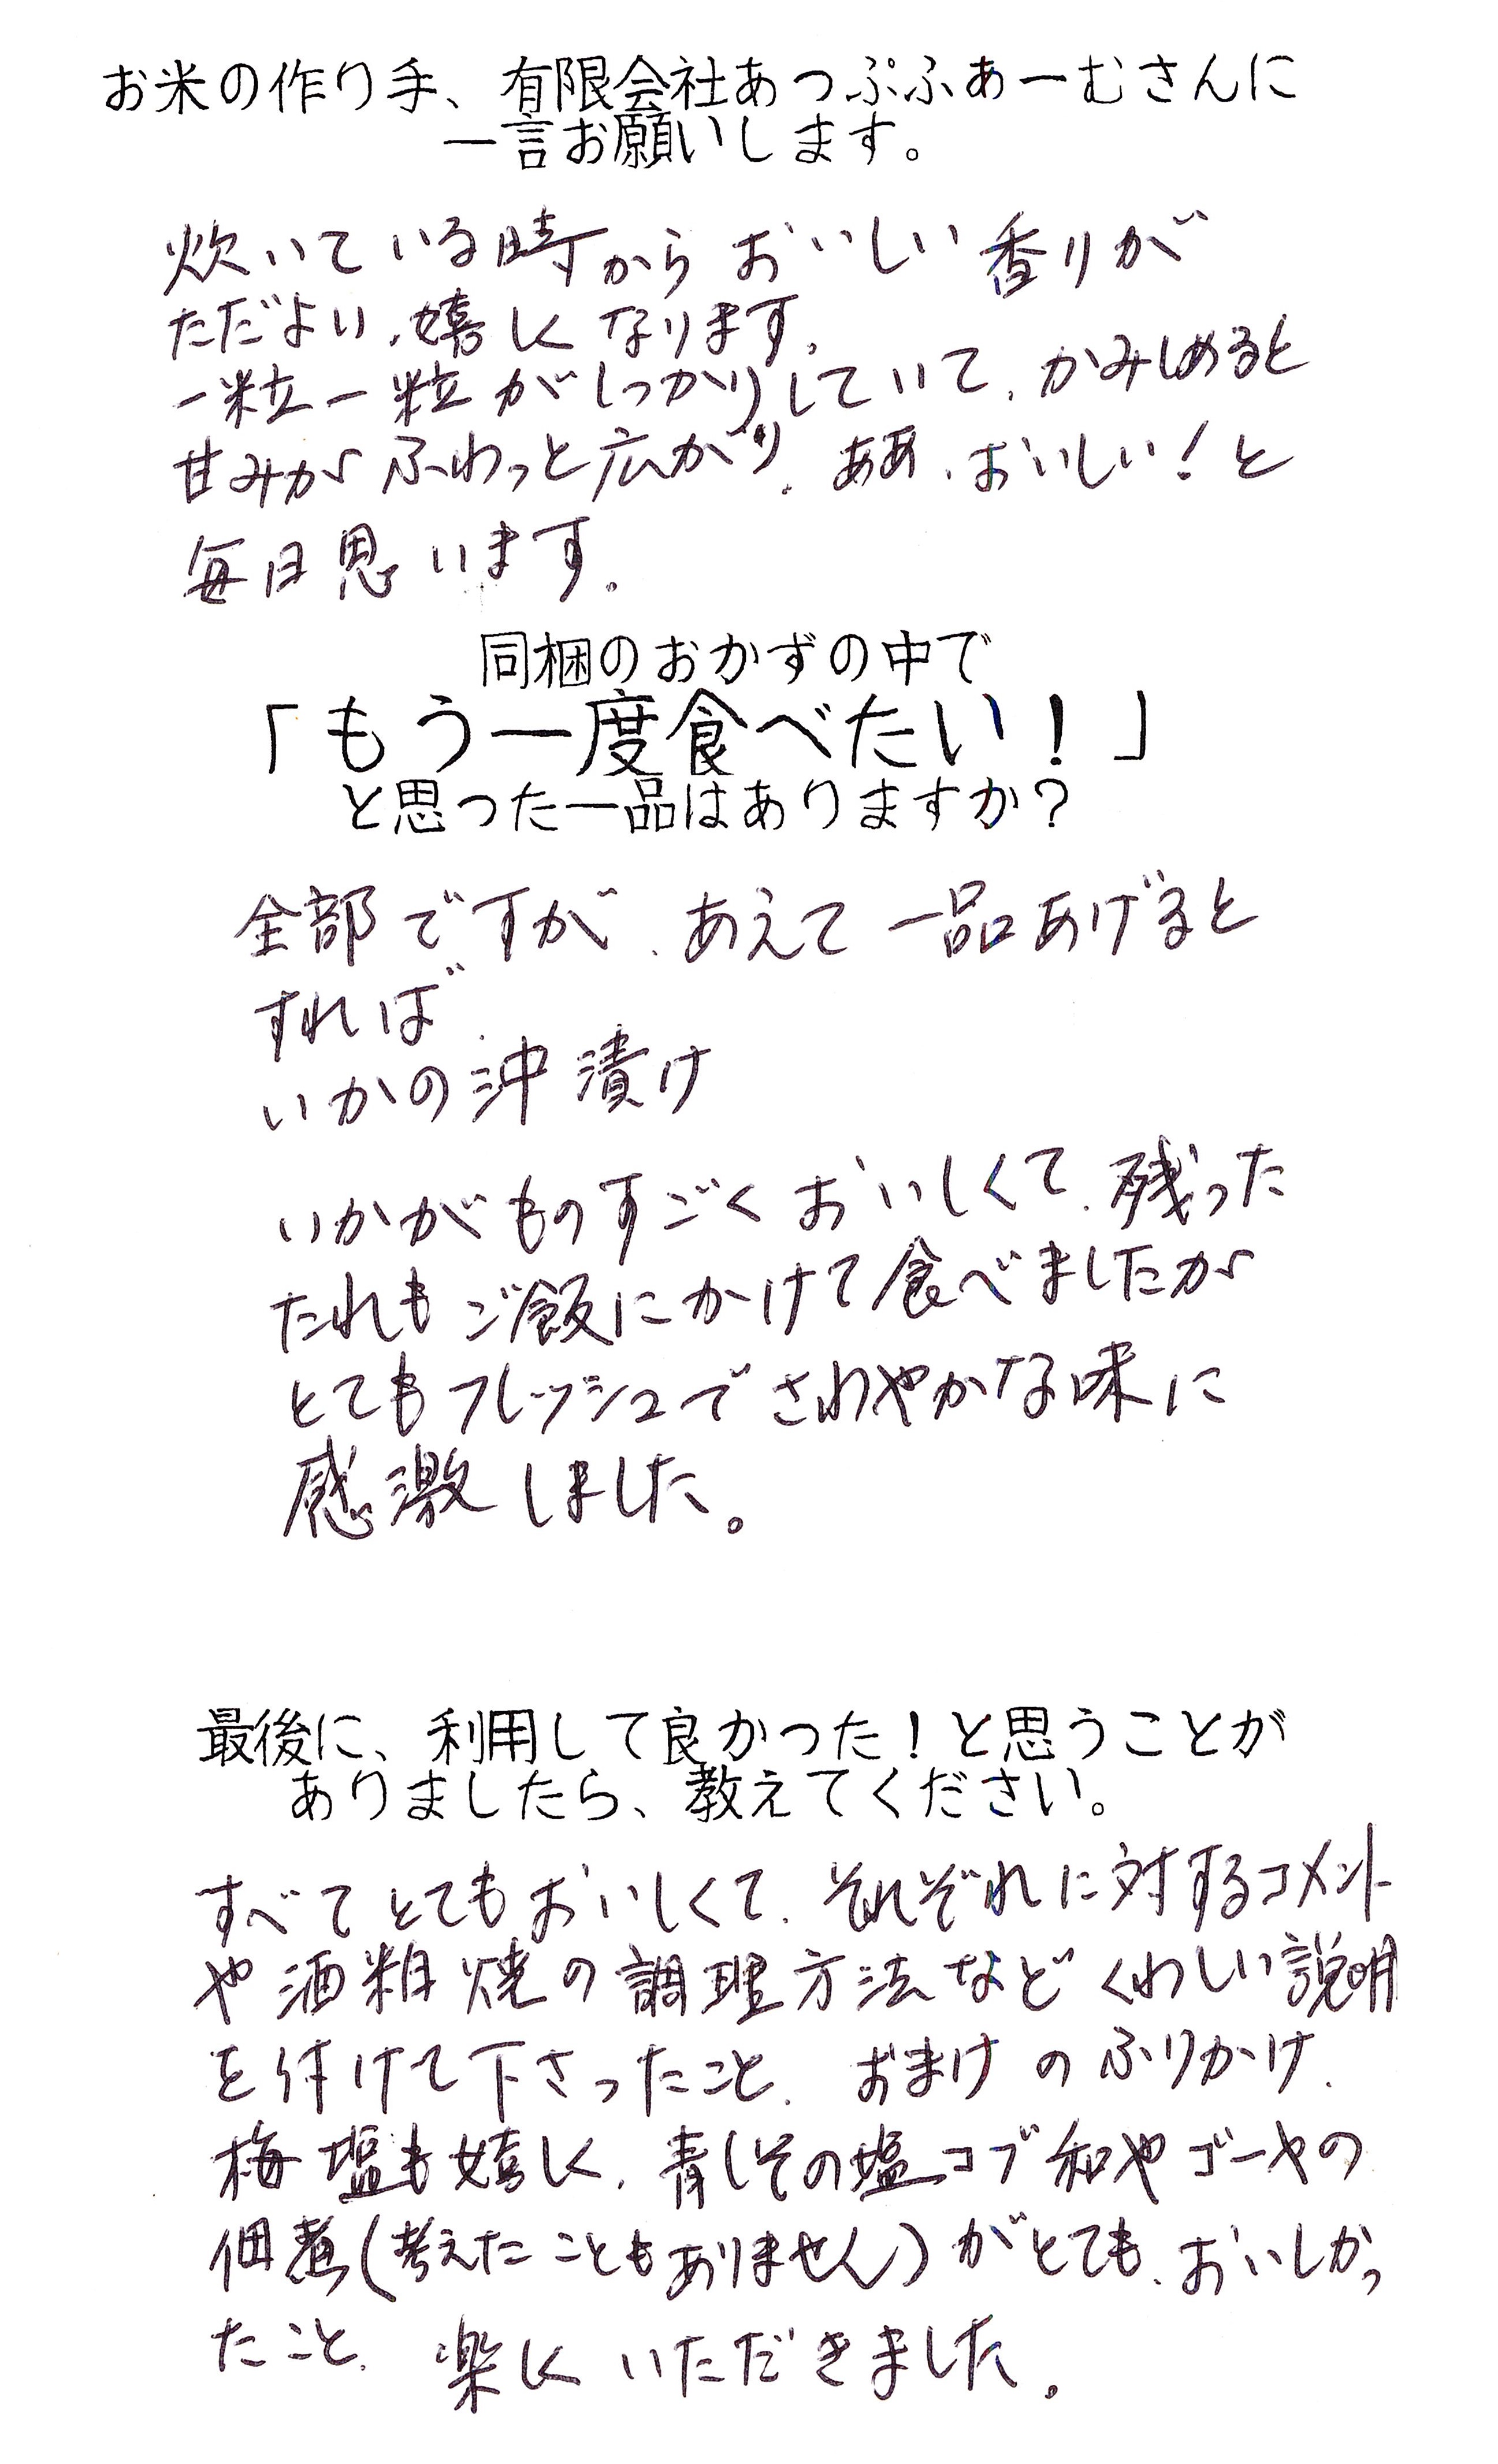 お米の作り手、有限会社あっぷふぁーむさんに
一言お願いします。
炊いている時からおいしい香りが
ただよい、嬉しくなります。
一粒一粒がしっかりしていて、かみしめると
甘みがふわっと広がり、ああ、おいしい！と
毎日思います。
同梱のおかずの中で
「もう一度食べたい！」
と思った一品はありますか？
全部ですが、あえて一品あげると
すれば、
いかの沖漬け
いかがものすごくおいしくて、残った
たれもご飯にかけて食べましたが
とてもフレッシュでさわやかな味に
感激しました。
最後に、利用して良かった！と思うことが
ありましたら、教えてください。
すべてとてもおいしくて、それぞれに対するコメント
や酒粕焼の調理方法などくわしい説明
を付けて下さったこと、おまけのふりかけ、
梅塩も嬉しく、青しその塩コブ和やゴーヤの
佃煮(考えたこともありません)がとても、おいしかっ
たこと、楽しくいただきました。